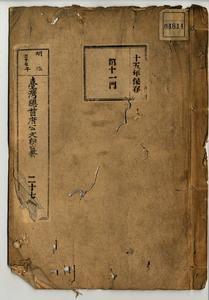 十五年保存
第十一門
明治
三十七年
臺灣總督府公文類纂
二十七